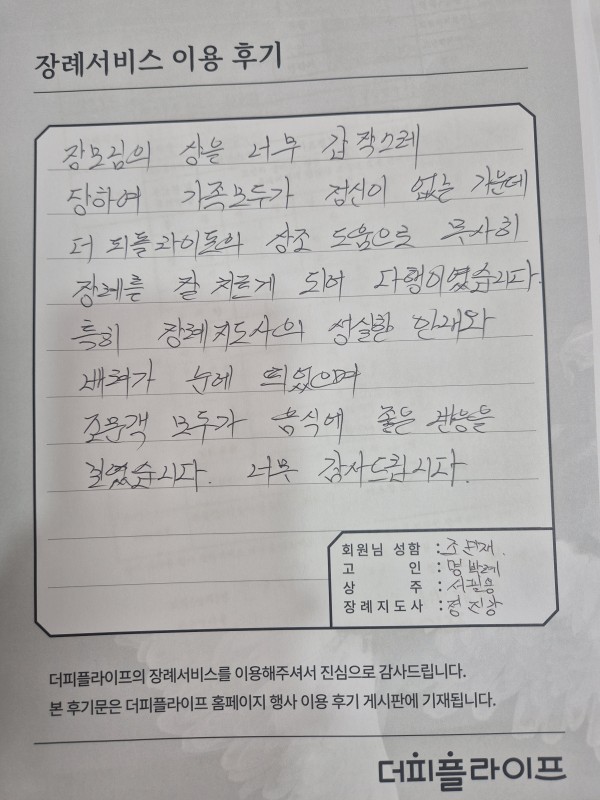 장례서비스 이용 후기
장모님의 상을 너무 갑작스레
당하여 가족모두가 정신이 없는 가운데
더 피플라이프의 상조 도움으로 무사히
장례를 잘 치르게 되어 다행이였습니다.
특히 장례지도사의 성실한 안내와
배려가 눈에 띄었으며
조문객 모두가 음식에 좋은 반응을
보였습니다. 너무 감사드립니다.
회원님 성함 :
고 인 :
상 주 : 서필응
장례지도사 : 정진광
더피플라이프의 장례서비스를 이용해주셔서 진심으로 감사드립니다.
본 후기문은 더피플라이프 홈페이지 행사 이용 후기 게시판에 기재됩니다.
더피플라이프